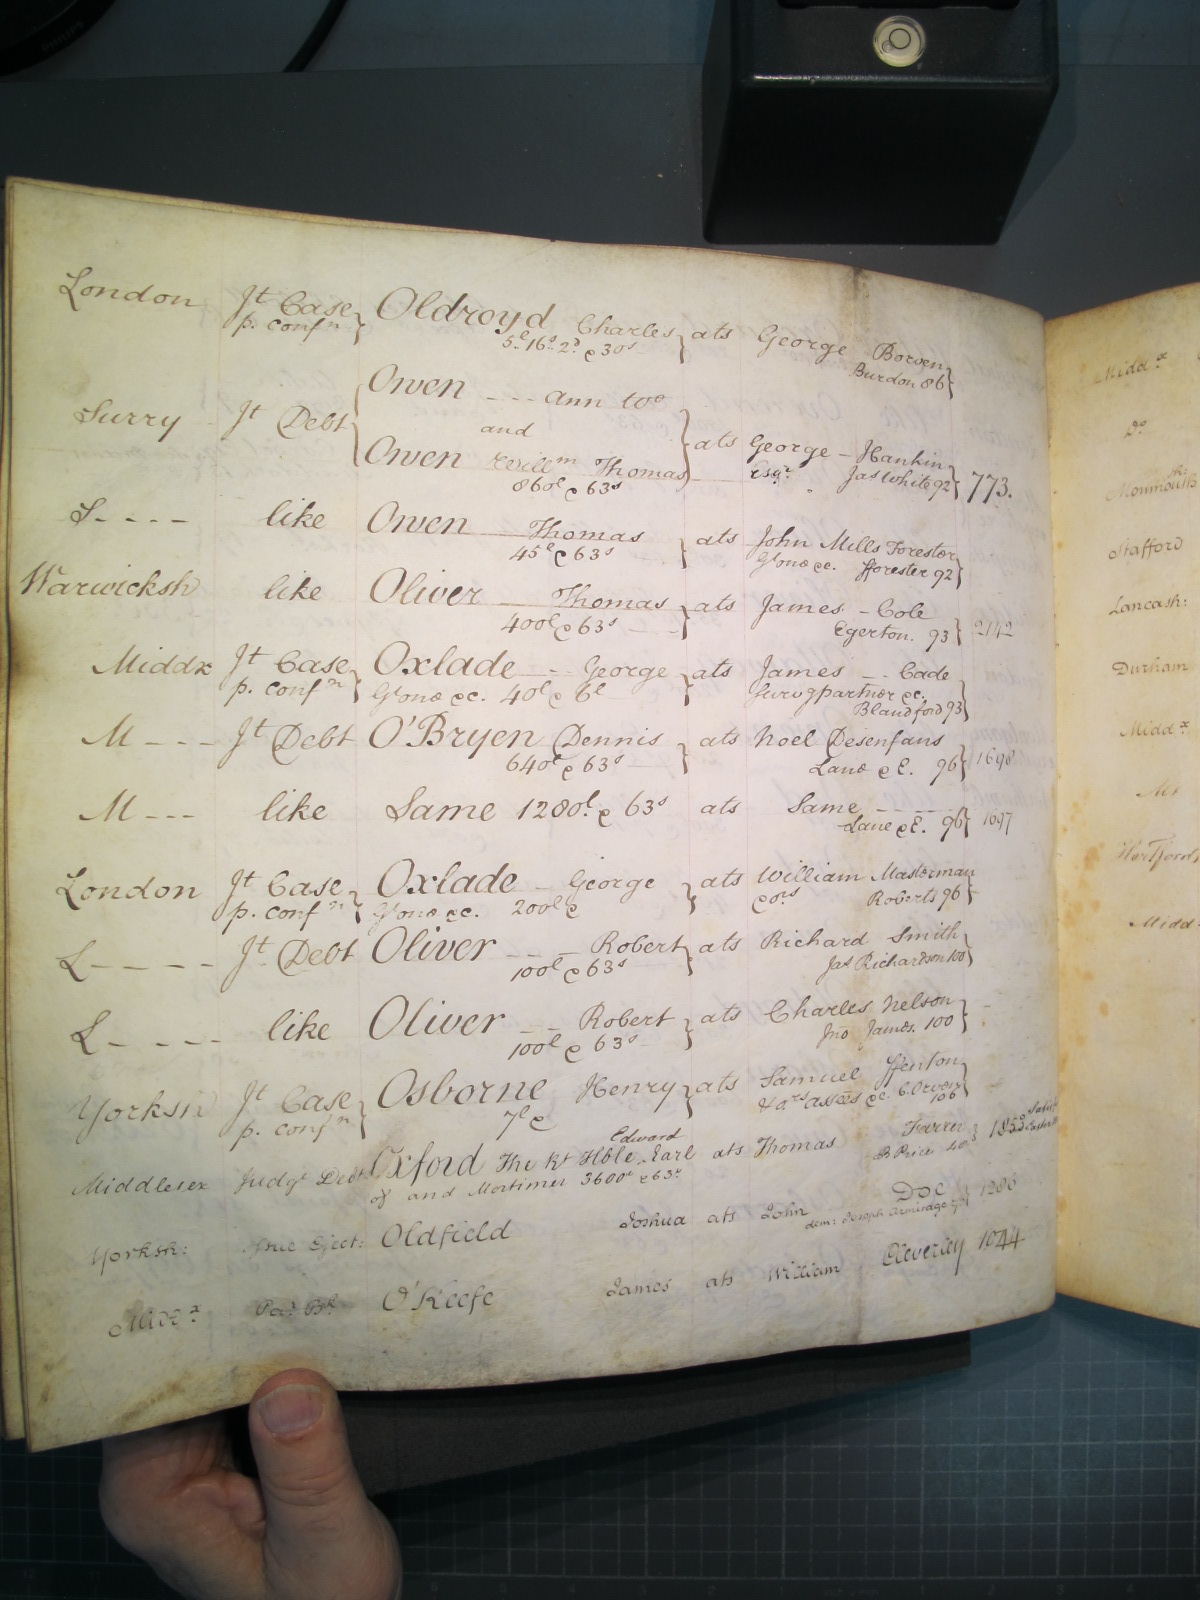 London Jt Case Oldroyd Charles ats George Bowen
p. confn 5l 16s 2d & 30s Burdon 86
Owen - - - ann two
and
Surry Jt Debt Owen Willm Thomas ats George - Hankin
860l & 63s Esqr Jas White 92 773.
S - - - - like Owen Thomas ats John Mills Forester
45l & 63s Gone &c. fforester 92
Warwicksh like Oliver Thomas ats James - Cole
400l & 63s Egerton. 93 2142
Middx Jt Case Oxlade - - George ats James - - Cade
p. confn Gone &c. 40l & 6l survg partner &c.
Blandford 93
M - - - Jt Debt O'Bryen Dennis ats Noel Desenfans
640l & 63s Lane & C. 96 1698
M - - - like Same 1280l. & 63s ats Same - - - -
Lane & C. 96 1697
London Jt Case Oxlade - George ats William Masterman
p. confn Gone &c. 200l & &ors Roberts 96
L - - - - - Jt Debt Oliver - - - Robert ats Richard Smith
100l & 63s Jas Richardson 100
L - - - - - like Oliver - - Robert ats Charles Nelson
100l & 63s Jno James. 100
Yorksh Jt Case Osborne Henry ats Samuel ffenton
p. confn 7l & & ars assees &c. C. Orver
106
Edward
Middlesex Judgt Debt Oxford The Rt Hble Earl ats Thomas Farrer
of and Mortimer 3600l & 63s B Price 40
Yorksh: Eject: Oldfield Joshua ats John Doe 1286
dem: Joseph Armitage
Middx O'Keefe James ats William Cleverley 1044
Middx
Do
Monmouth
sh:
Stafford
Lancash:
Durham
Middx
Hertfords
Midd